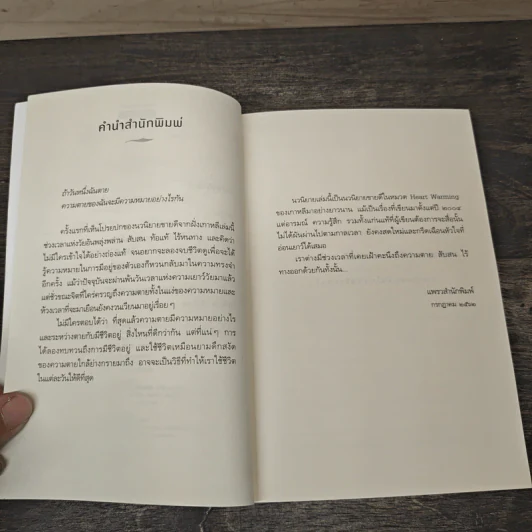 คำนำสำนักพิมพ์
ถ้าวันหนึ่งฉันตาย
ความตายของฉันจะมีความหมายอย่างไรกัน
ครั้งแรกที่เห็นโปรยปกของนวนิยายขายดีจากฝั่งเกาหลีเล่มนี้
ช่วงเวลาแห่งวัยอันพลุ่งพล่าน สับสน ท้อแท้ ไร้หนทาง และคิดว่า
ไม่มีใครเข้าใจได้อย่างถ่องแท้ จนอยากจะลองจบชีวิตดูเพื่อจะได้
รู้ความหมายในการมีอยู่ของตัวเองก็หวนกลับมาในความทรงจำ
อีกครั้ง แม้ว่าปัจจุบันจะผ่านพ้นวันเวลาแห่งความเยาว์วัยมาแล้ว
แต่ช้วขณะจิตที่ใคร่ครวญถึงความตายทั้งในแง่ของความหมายและ
ห้วงเวลาที่จะมาเยือนยังคงวนเวียนมาอยู่เรื่อยๆ
ไม่มีใครตอบได้ว่า ที่สุดแล้วความตายมีความหมายอย่างไร
และระหว่างตายกับมีชีวิตอยู่ สิ่งไหนที่ดีกว่ากัน แต่ที่แน่ๆ การ
ได้ลองทบทวนถึงการมีชีวิตอยู่ และใช้ชีวิตเหมือนยามดึกสงัด
ของความตายใกล้ย่างกรายมาถึง อาจจะเป็นวิธีที่ทำให้เราใช้ชีวิต
ในแต่ละวันให้ดีที่สุด
นวนิยายเล่มนี้เป็นนวนิยายขายดีในหมวด Heart Warming
ของเกาหลีมาอย่างยาวนาน แม้เป็นเรื่องที่เขียนมาตั้งแต่ปี ๒๐๐๔
แต่อารมณ์ ความรู้สึก รวมทั้งแก่นแท้ที่ผู้เขียนต้องการจะสื่อนั้น
ไม่ได้ผันผ่านไปตามกาลเวลา ยังคงสดใหม่และกรีดเฉือนหัวใจที่
อ่อนเยาว์ได้เสมอ
เราต่างมีช่วงเวลาที่เคยเฝ้าคะนึงถึงความตาย สับสน ไร้
ทางออกด้วยกันทั้งนั้น...
แพรวสำนักพิมพ์
กรกฎาคม ๒๕๖๒